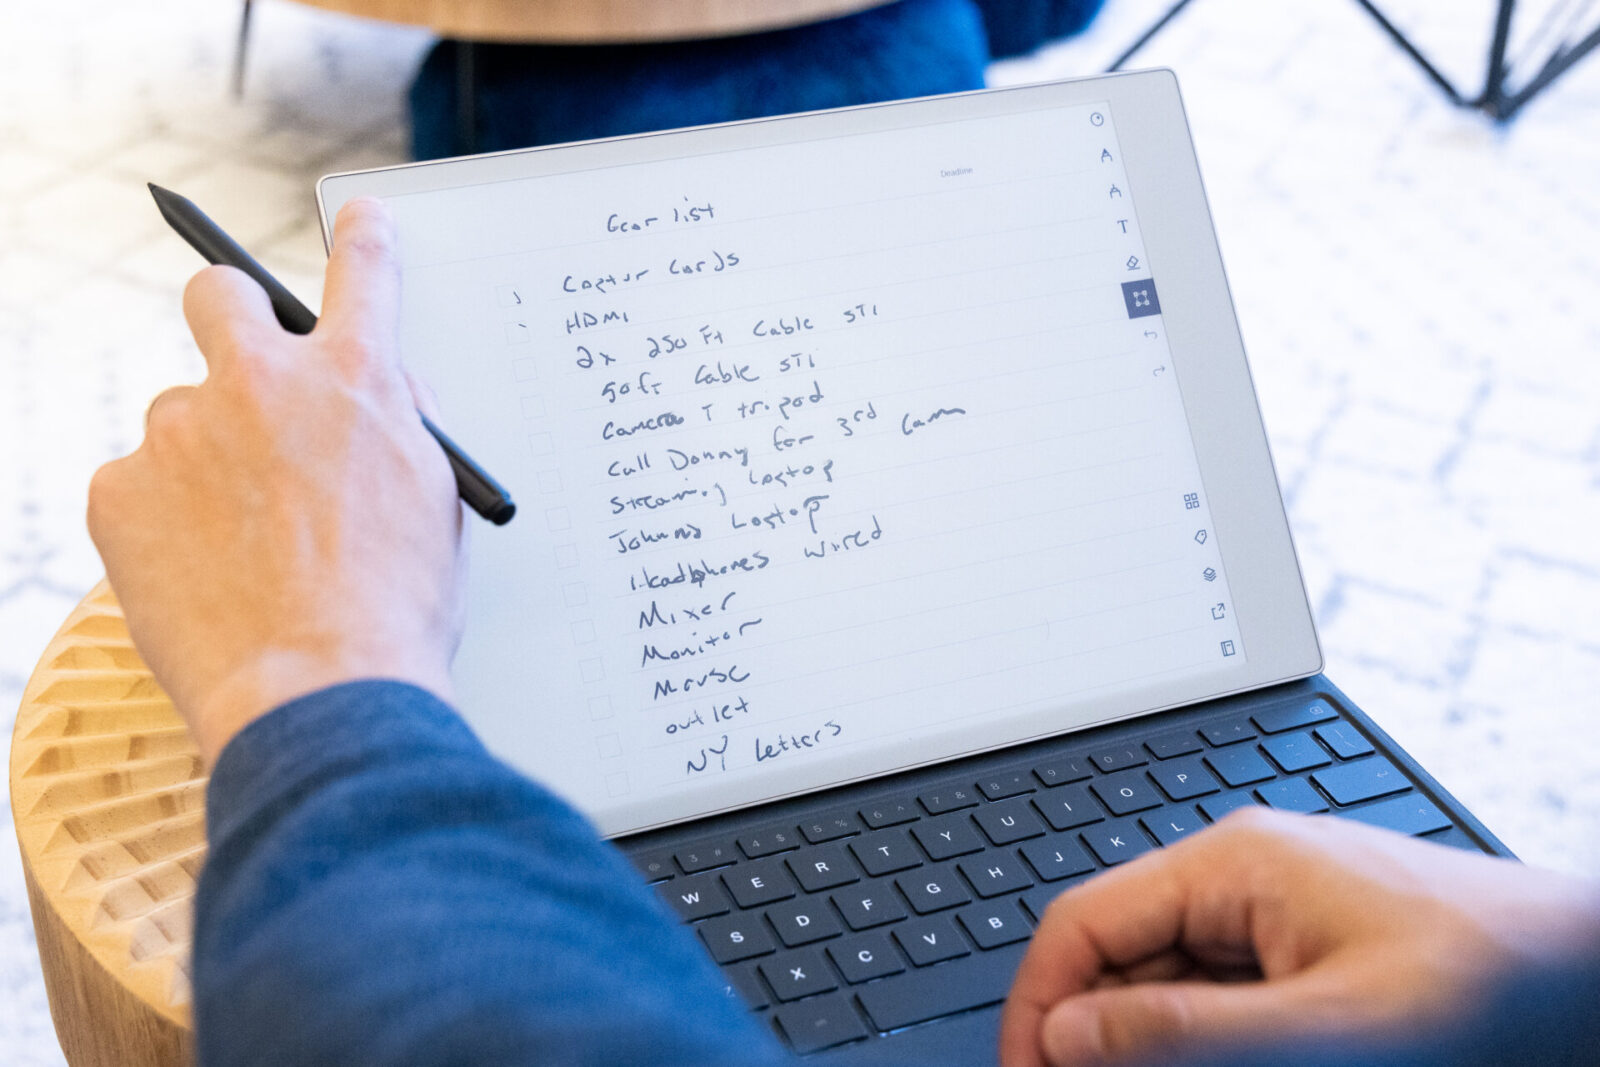 Deadline
Gear list
Captur Cards
HDMI
2x 250 Ft Cable STI
50ft Cable STI
Camera T tripod
Call Donny for 3rd Cam
Streaming Laptop
Johnns Laptop
Headphones Wired
Mixer
Monitor
Mouse
outlet
NY Letters
T
@ 3 # 4 $ 5 % 6 ^ 7 & 8 * 9 ( 0 ) - +
W E R T Y U I O P
S D F G H J K L
Z X C V B